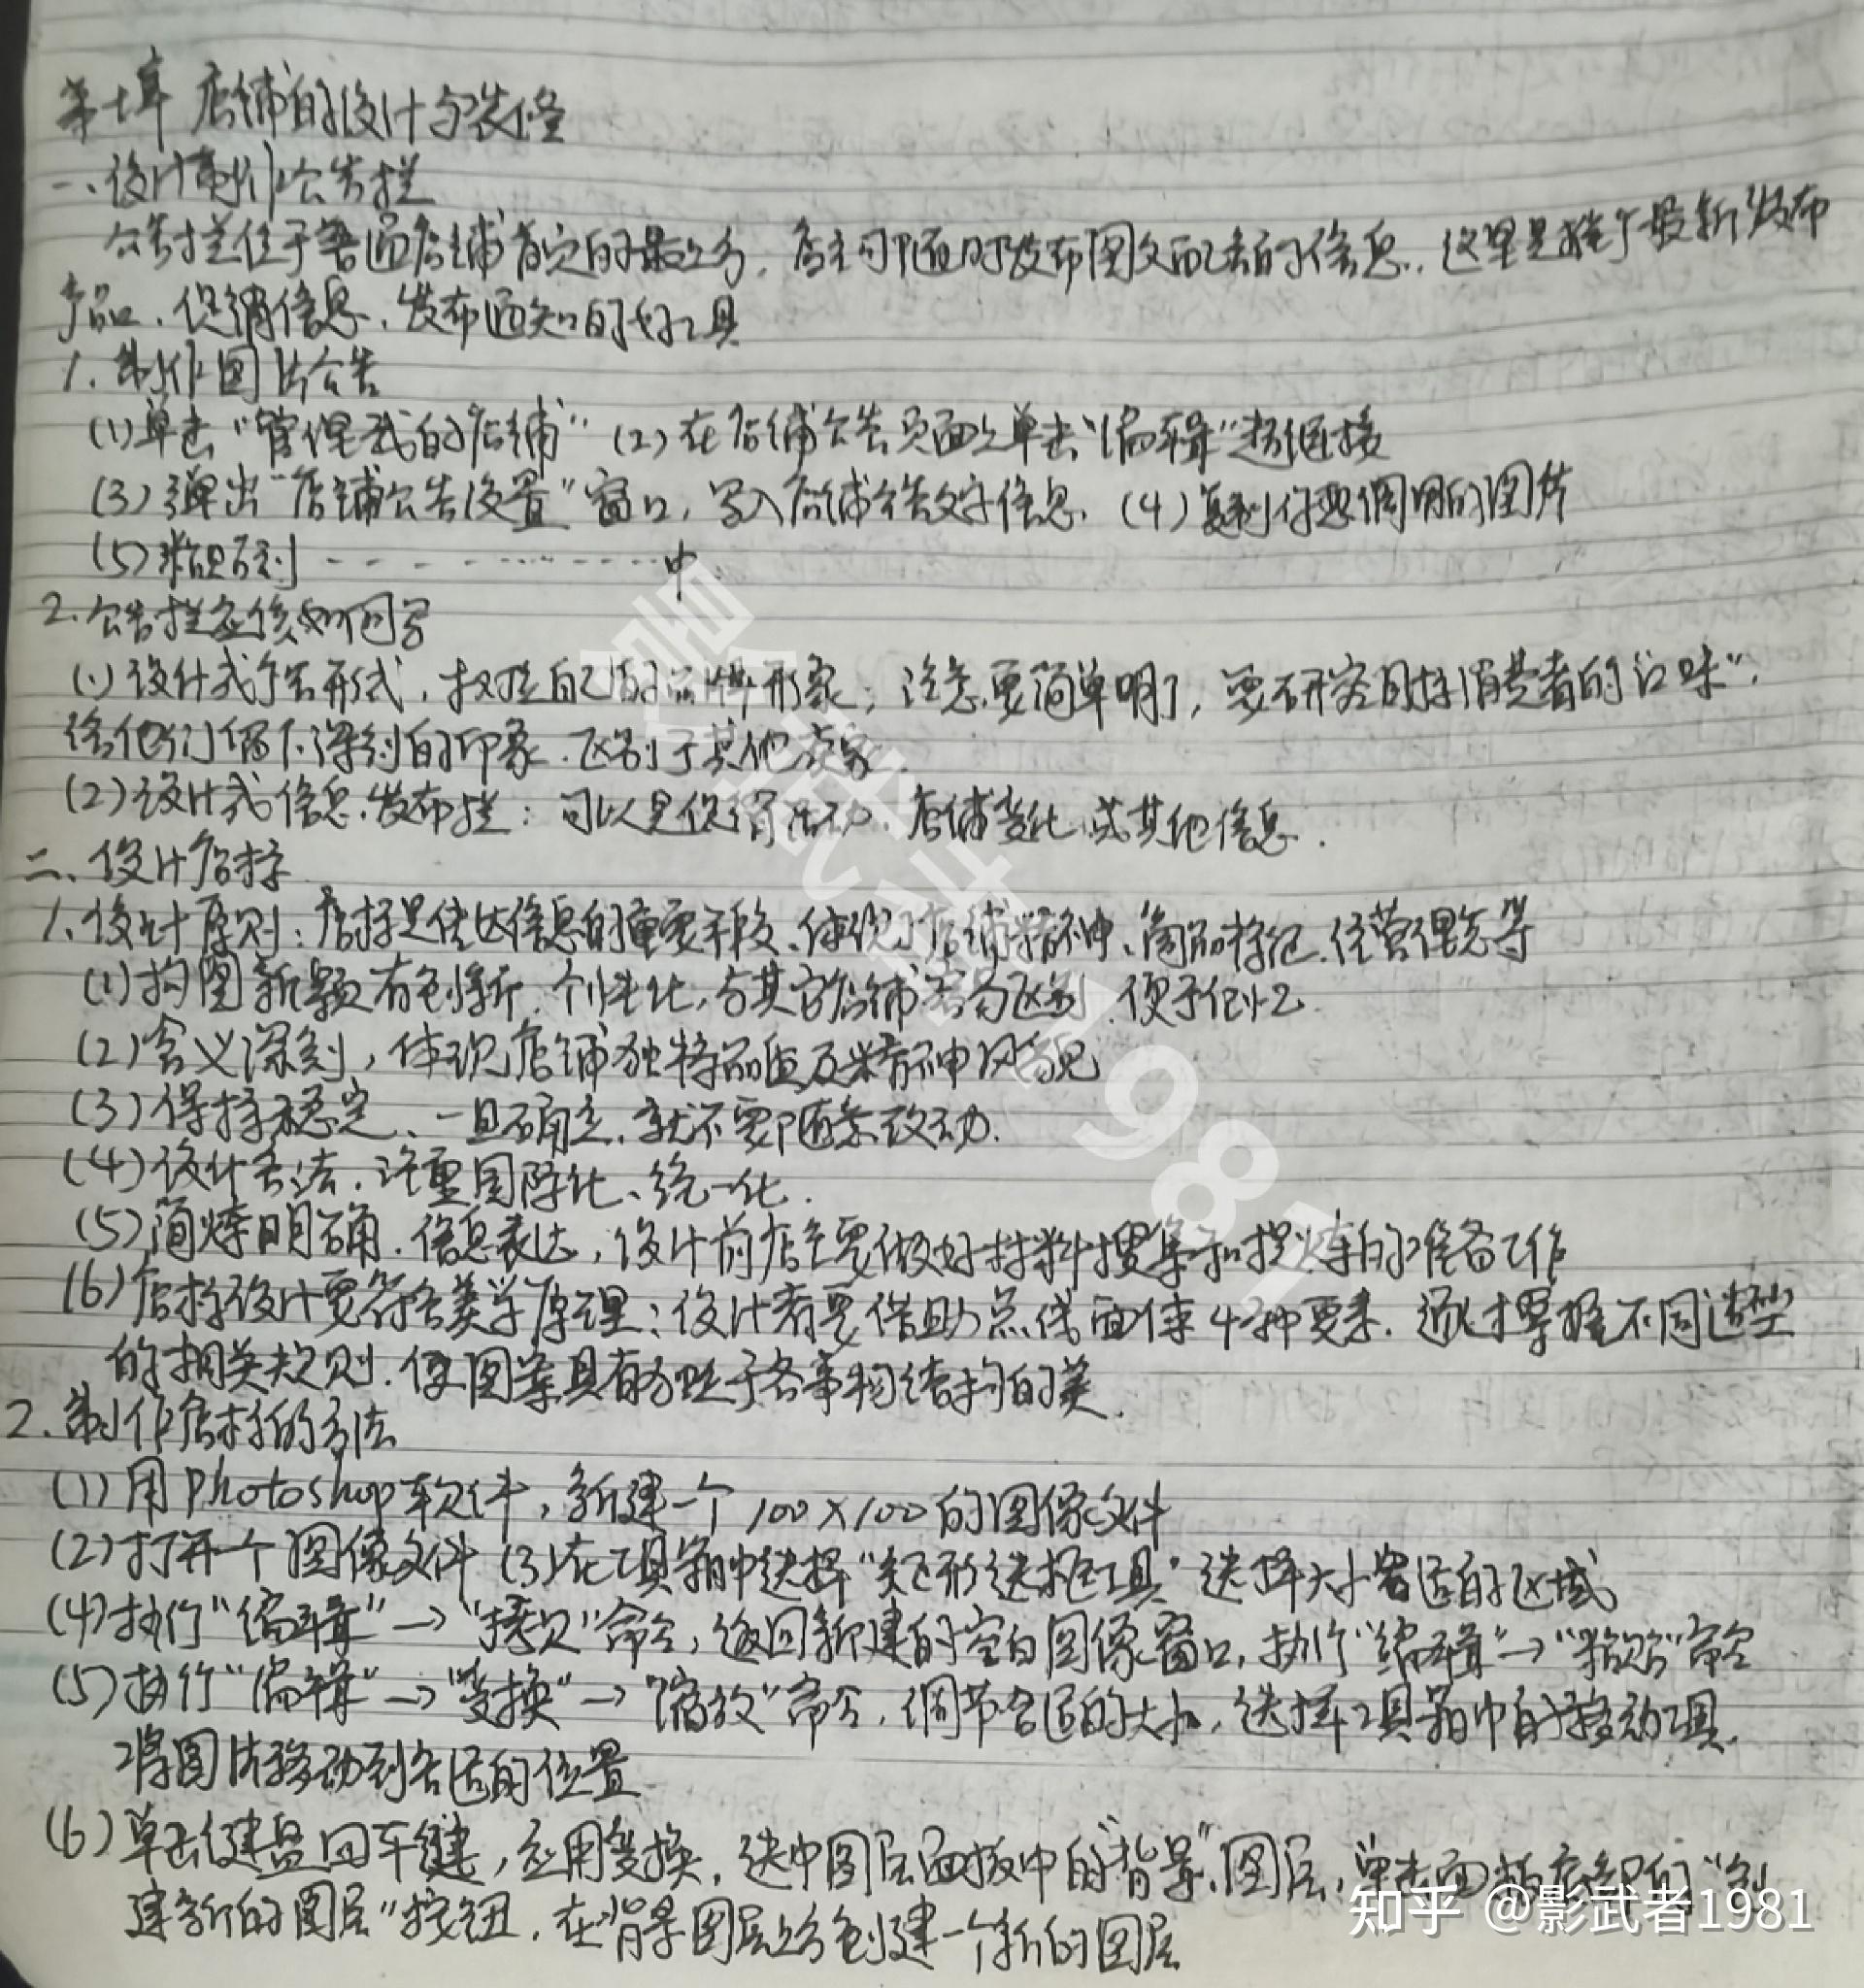 第七章 店铺的设计与装修
一、设计制作公告栏
公告栏位于普通店铺首页的最上方，店主可随时发布图文配套的信息，这里是推广最新发布
产品、促销信息、发布通知的好工具
1. 制作图片公告
(1)单击“管理我的店铺” (2)在店铺公告页面上单击“编辑”超链接
(3)弹出“店铺公告设置”窗口，写入店铺公告文字信息. (4)复制你想调用的图片
(5)粘贴到 - - - - - - - - - - 中
2. 公告栏应该如何写
(1)设计成广告形式，树立自己的品牌形象；注意要简单明了，要研究目标消费者的“口味”，
给他们留下深刻的印象.区别于其他卖家.
(2)设计成信息发布栏：可以是促销活动、店铺变化或其他信息.
二、设计店标
1. 设计原则：店标是传达信息的重要手段、体现了店铺精神、商品特征、经营理念等
(1)构图新颖有创新、个性化，与其它店铺容易区别，便于记忆
(2)含义深刻，体现店铺独特品质及精神风貌
(3)保持稳定、一旦确定，就不要随意改动.
(4)设计合法，注重国际化、统一化.
(5)简练明确.信息表达，设计前店主要做好材料搜集和提炼的准备工作
(6)店标设计要符合美学原理：设计者要借助点线面体4种要素，通过掌握不同造型
的相关规则，使图案具有独立于各事物结构的美.
2. 制作店标的方法
(1)用Photoshop软件，新建一个100×100的图像文件
(2)打开一个图像文件 (3)在工具箱中选择“矩形选框工具”选择大小合适的区域
(4)执行“编辑”→“拷贝”命令，返回新建的空白图像窗口，执行“编辑”→“粘贴”命令
(5)执行“编辑”→“变换”→“缩放”命令，调节合适的大小，选择工具箱中的移动工具.
将图片移动到合适的位置
(6)单击键盘回车键，应用变换，选中图层面板中的“背景”图层，单击面板底部的“创
建新的图层”按钮，在背景图层上方创建一个新的图层
影武者1981
知乎 @影武者1981